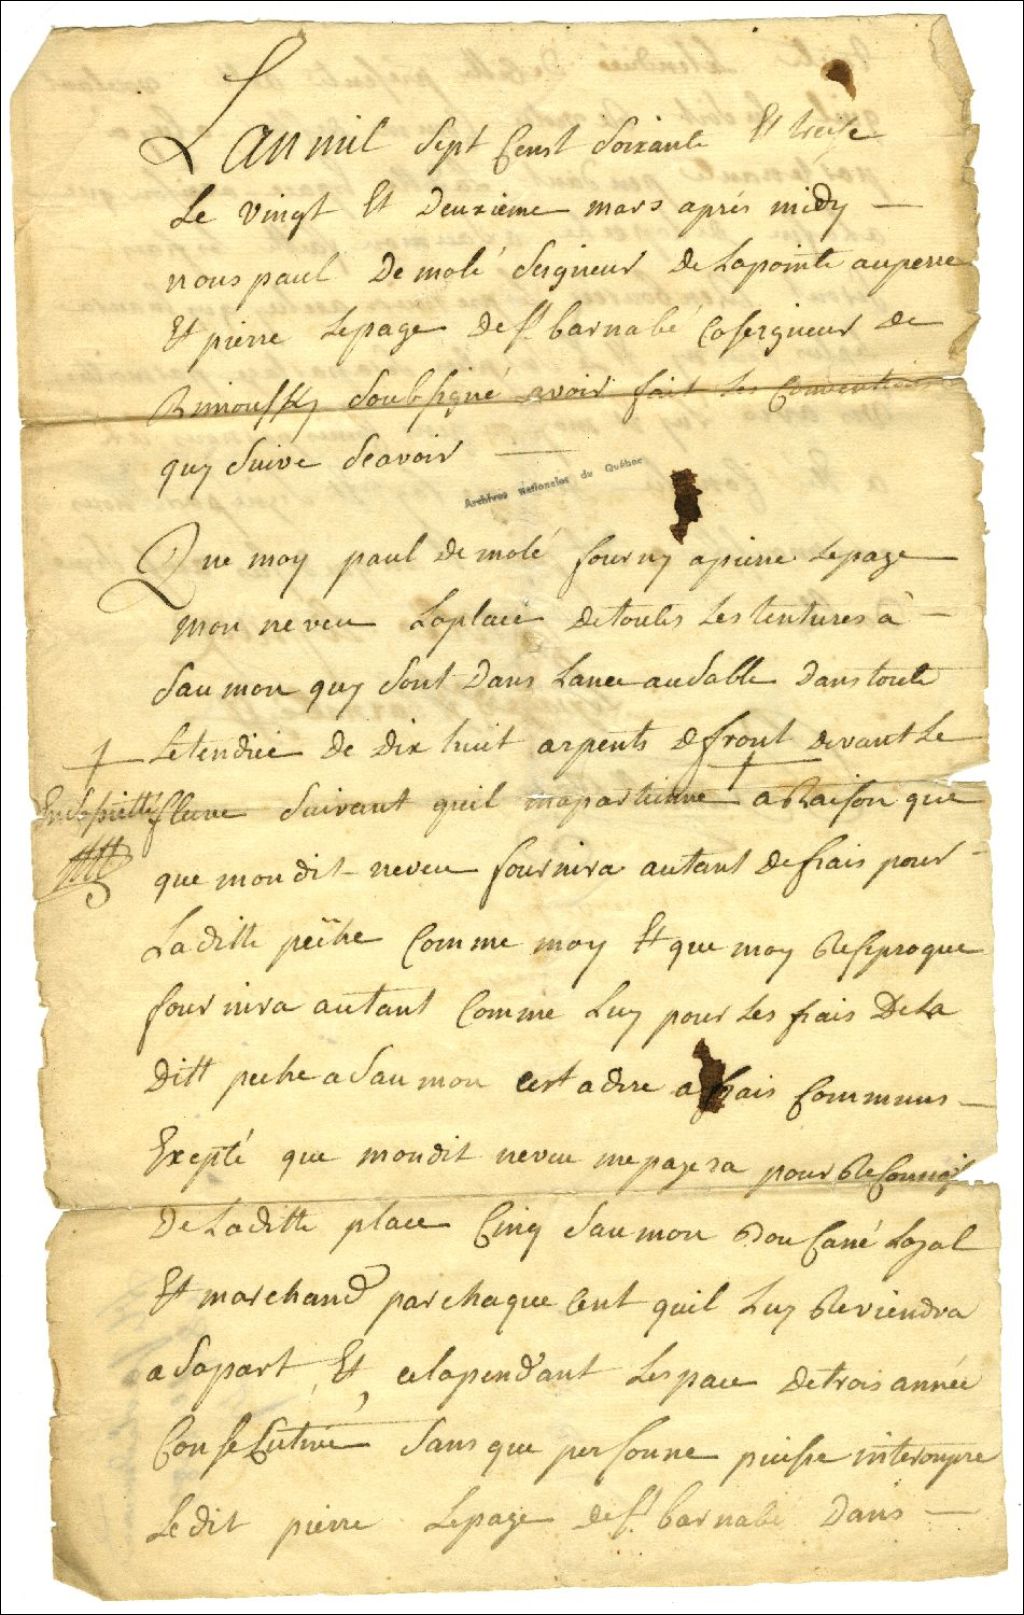 L'an mil sept Censt soixante Et treise
Le vingt Et Deuxieme mars aprés midy
nous paul De molé Seigneur De Lapointe auperre
Et pierre Lepage De st barnabé Coseigneur de
Rimousky Soubsigné avoir fait les Conventions
quy Suive Scavoir
Archives Nationales du Québec
Que moy paul De molé fourny apierre Lepage
mon neveu Laplace De toutes Les tentures à
Saumon quy Sont Dans Lance au Sable Dans toute
Letendüe De Dix huit arpents De front devant Le
fleuve Suivant quil mapartienne a Raison que
que mondit neveu fournira autant De frais pour
Laditte pëche Comme moy Et que moy Resiproque
fournira autant Comme Luy pour Les frais De La
Ditt peche a Saumon cest adire a frais Communs
Exepté que mondit neveu me payera pour
De Laditte place Cinq Saumon Boucané Loyal
Et marchand par chaque Cent quil Luy Reviendra
a Sapart, Et, cela pendant Lespace De trois année
Consecutive Sans que personne puisse interompre
Ledit pierre Lepage De st barnabé Dans